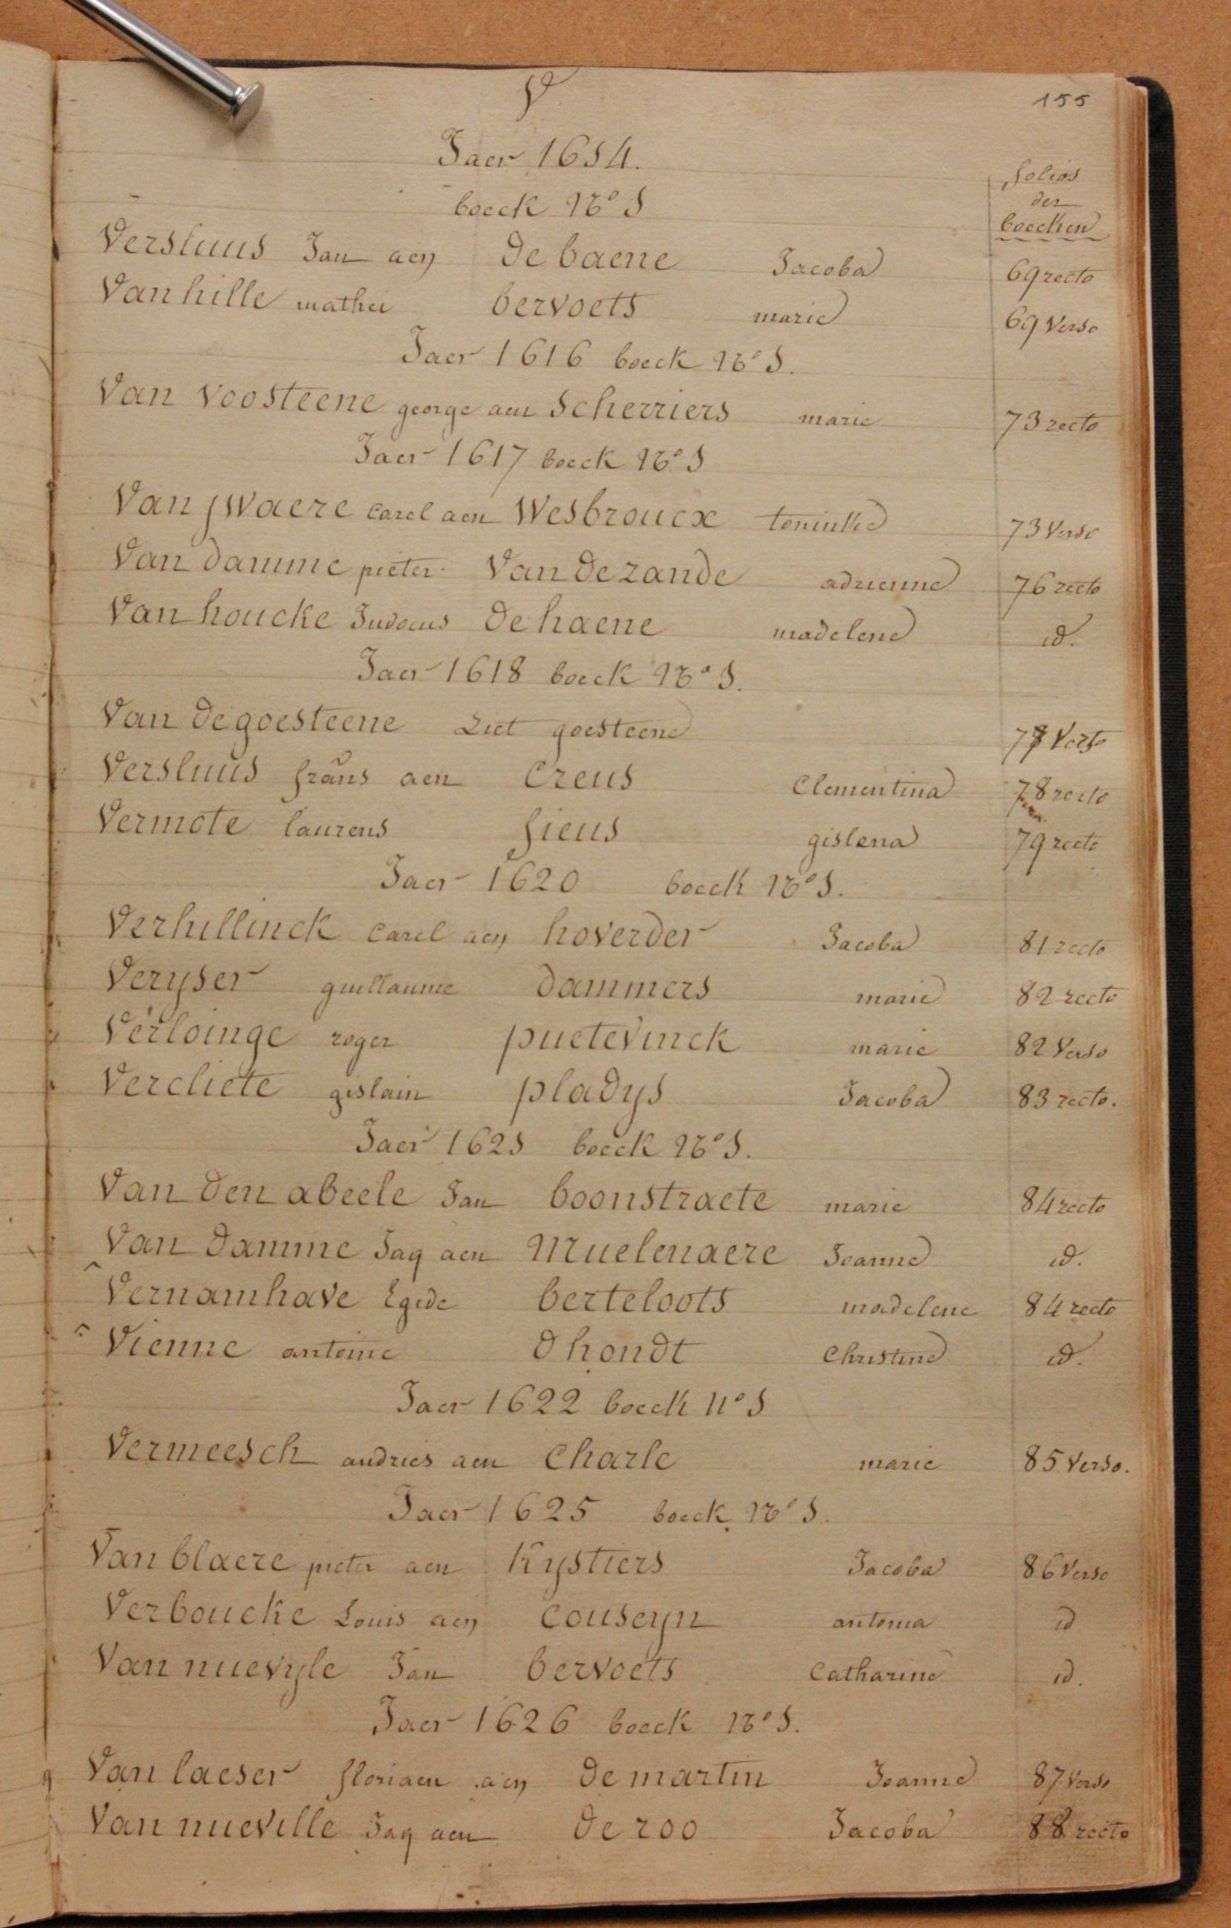 V
155
Jaer 1614.
folios
der
boecken
boeck N° 1
Versluus Jan aen de baene Jacoba 69 recto
Van hille matheu bervoets marie 69 Verso
Jaer 1616 boeck N° 1.
Van Voosteene george aen Scherriers marie 73 recto
Jaer 1617 boeck N° 1
Van ywaere Carel aen Wesbroucx 73 Verso
Van damme pieter Van de zande adrienne 76 recto
Van houcke Judocus de haene madelene id.
Jaer 1618 boeck N° 1.
Van de goesteene Ziet goesteene
Versluus frans aen Creus Clementina 78 recto
Vermote laurens fieus gislena 79 recto
Jaer 1620 boeck N° 1.
Verhillinck Carel aen hoverder Jacoba 81 recto
Veryser guillaume dammers marie 82 recto
Verloinge roger puetevinck marie 82 Verso
Vercliete gislain pladys Jacoba 83 recto.
Jaer 1621 boeck N° 1.
Van den abeele Jan boonstraete marie 84 recto
Van damme Jaq aen Muelenaere Joanne id.
Vernamhave Egide berteloots madelene 84 recto
Vienne antoine dhondt Christine id.
Jaer 1622 boeck N° 1
Vermeesch andries aen Charle marie 85 Verso.
Jaer 1625 boeck N° 1.
Van blaere pieter aen Kystiers Jacoba 86 Verso
Verboucke Louis aen Couseyn antonia id
Van nuevyle Jan bervoets Catharine id.
Jaer 1626 boeck N° 1.
Van laeser floriaen aen de martin Joanne 87 Verso
Van nueville Jaq aen de roo Jacoba 88 recto